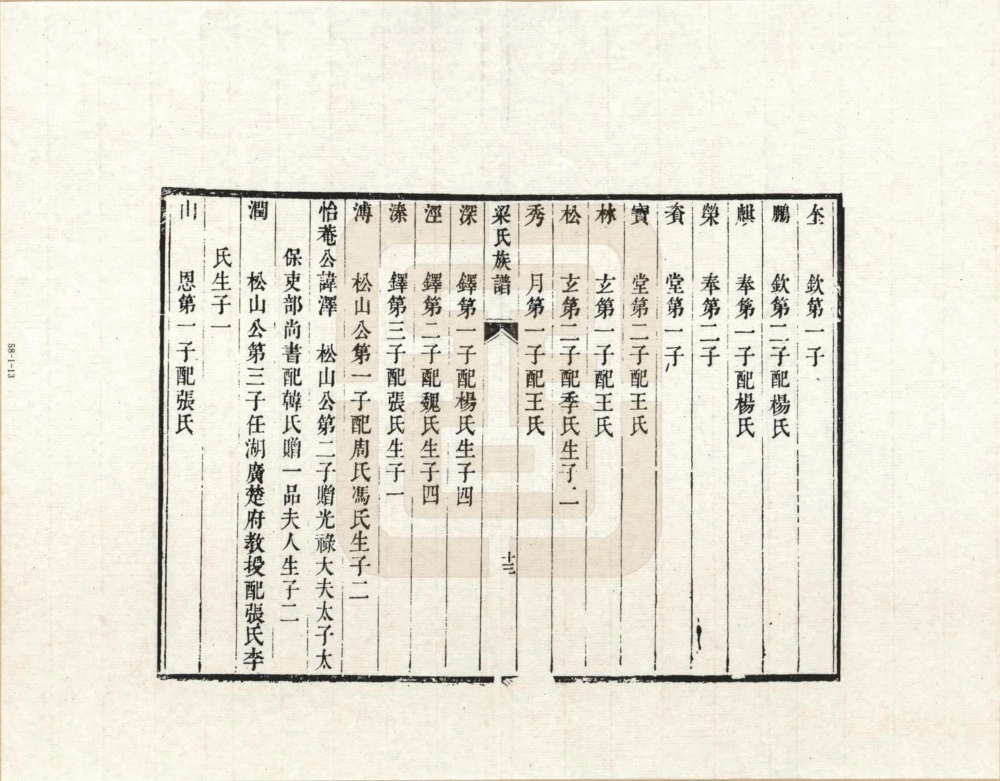 坴 欽第一子
鵬 欽第二子配楊氏
麒 奉第一子配楊氏
榮 奉第二子
賓 堂第一子
寶 堂第二子配王氏
林 玄第一子配王氏
松 玄第二子配季氏生子二
秀 月第一子配王氏
梁氏族譜 十三
深 鐸第一子配楊氏生子四
涇 鐸第二子配魏氏生子四
溱 鐸第三子配張氏生子一
溥 松山公第一子配周氏馮氏生子二
怡菴公諱澤 松山公第二子贈光祿大夫太子太
保吏部尚書配韓氏贈一品夫人生子二
潤 松山公第三子任湖廣楚府教授配張氏李
氏生子一
山 恩第一子配張氏
58-1-13